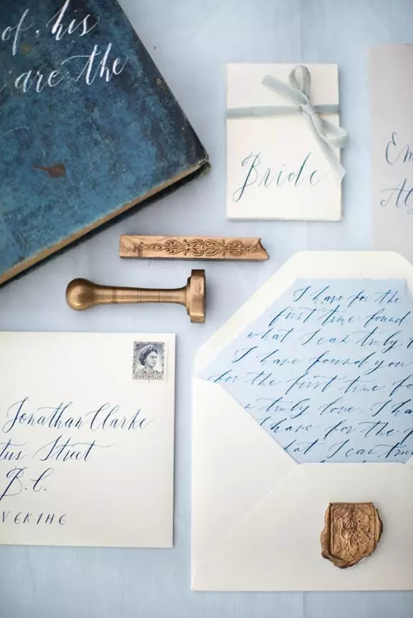 of his
are the
Bride
Em
AUSTRALIA
Jonathan Clarke
tus Street
B.C.
V6K1H6
I have for the
first time found
what I can truly
I have found you
for the first time
truly love. I ha
have for the
at I can tru